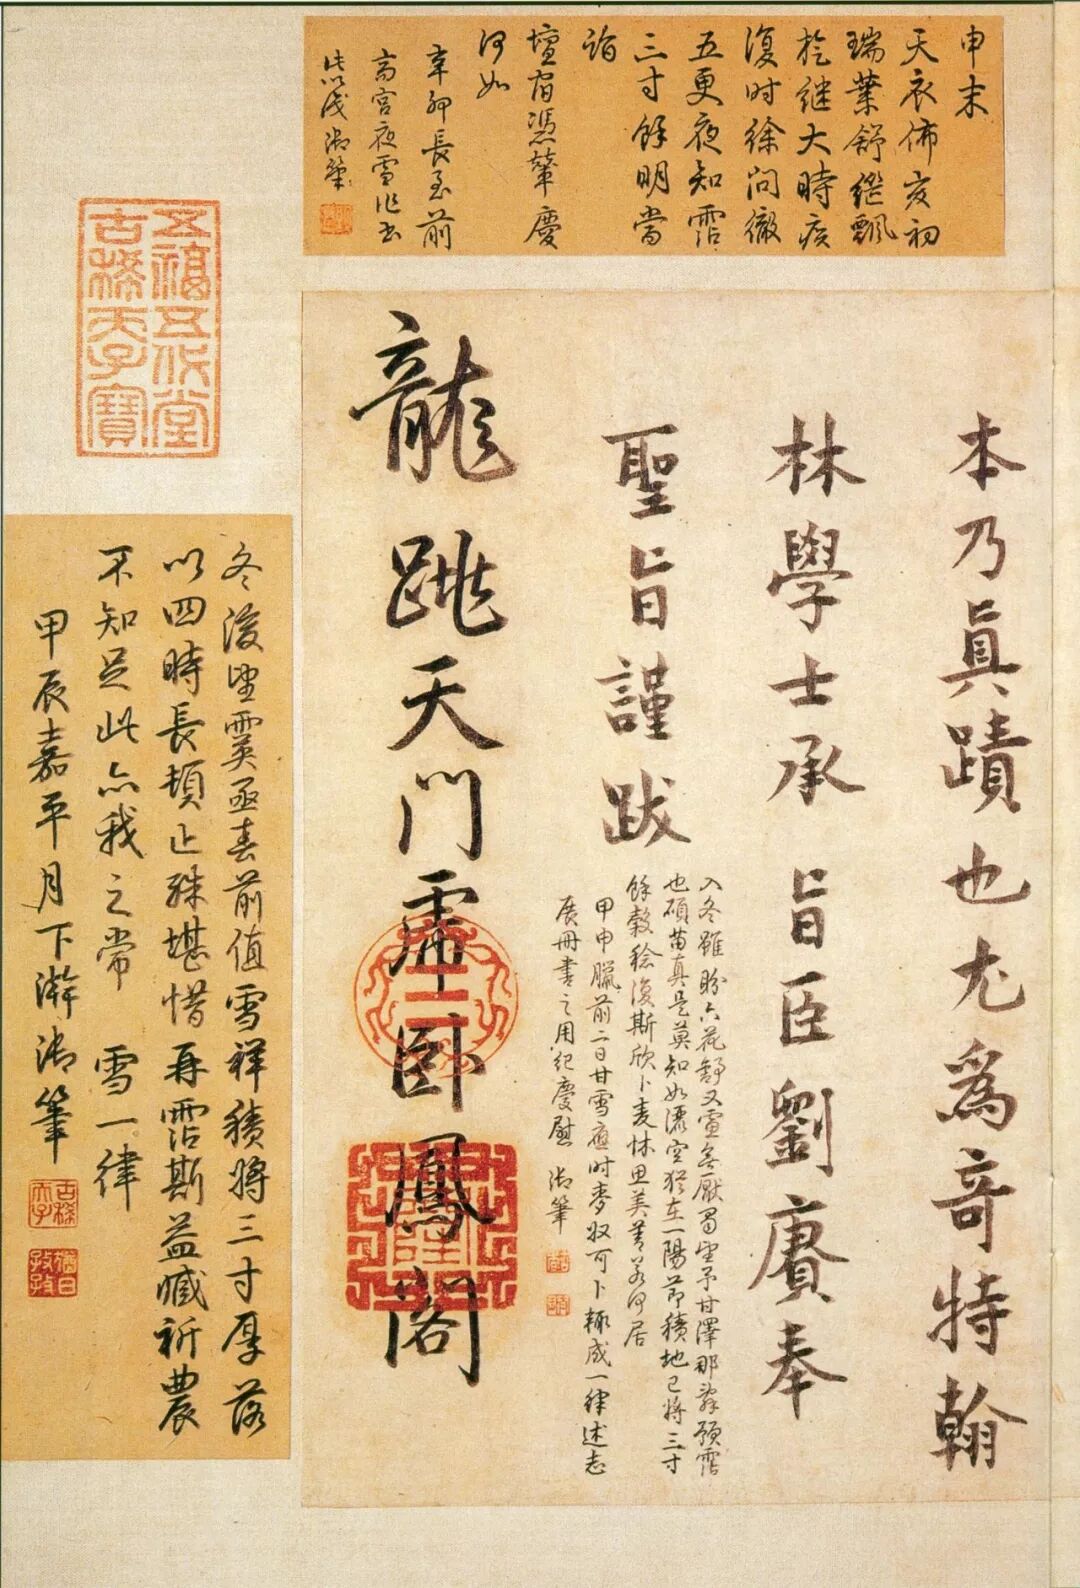 申末
天衣佈亥初
瑞葉舒繼飄
於繼大時疾
復時徐問徹
五更夜知霑
三寸餘明當
詣
壇宿憑輦慶
何如
辛卯長至前
齋宮夜雪作書
此以識御筆
本乃真蹟也尤為奇特翰
林學士承旨臣劉賡奉
聖旨謹跋
入冬雖盼六花舒又霙無厭蜀望予甘澤那辭預霑
也碩苗真是莫知如濡空猶在一陽節積地已將三寸
餘穀稔復斯欣卜麥怵思美善若何居
甲申臘前二日甘雪應時麥收可卜輒成一律述志
展冊書之用紀慶慰 御筆
龍跳天門虎臥鳳閣
五福五代堂
古稀天子寶
冬後望霙亟春前值雪祥積將三寸厚落
以四時長頓止殊堪惜再霑斯益臧祈農
不知足此亦我之常 雪一律
甲辰嘉平月下澣御筆
古稀天子
猶日孜孜